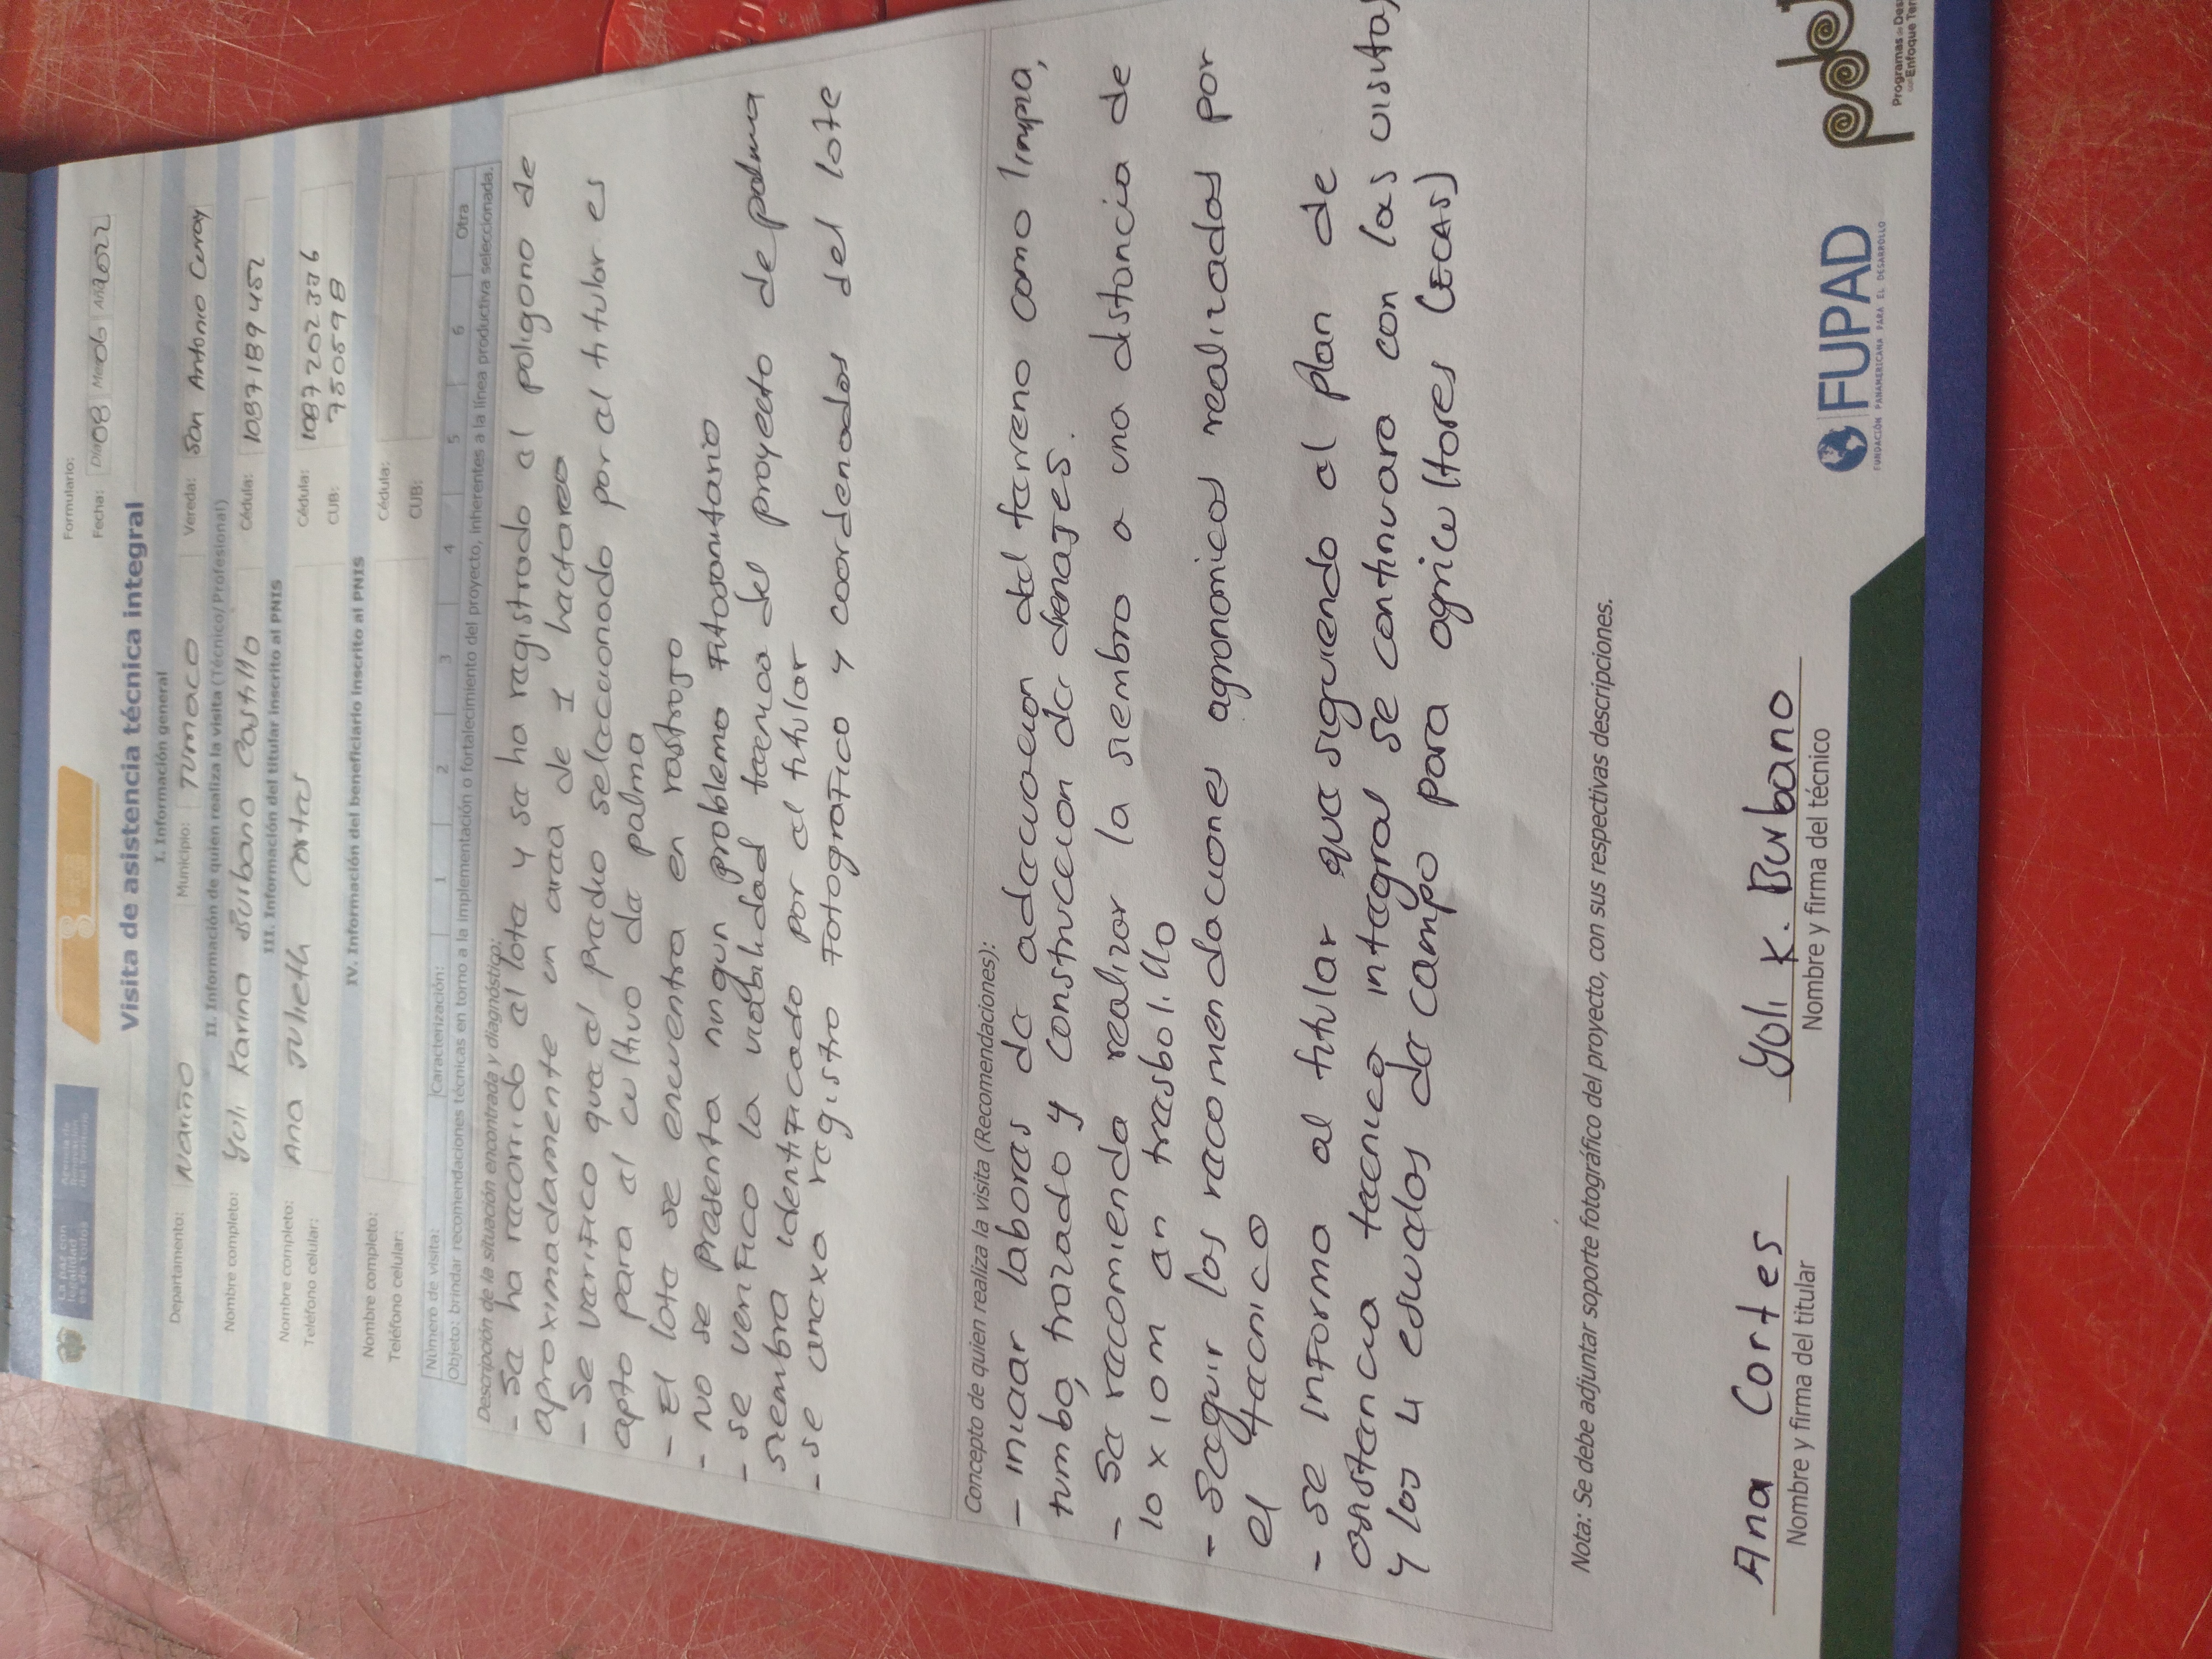 La paz con legalidad es de todos
Agencia de Renovación del Territorio
Formulario:
Fecha: Día 08 Mes 06 Año 2022
Visita de asistencia técnica integral
I. Información general
Departamento: Nariño Municipio: Tumaco Vereda: San Antonio Curay
II. Información de quien realiza la visita (Técnico/Profesional)
Nombre completo: Yuli Karina Burbano Castillo Cédula: 1087189452
III. Información del titular inscrito al PNIS
Nombre completo: Ana Julieth Cortes Cédula: 1087202336
Teléfono celular: CUB: 750598
IV. Información del beneficiario inscrito al PNIS
Nombre completo: Cédula:
Teléfono celular: CUB:
Número de visita: Caracterización: 1 2 3 4 5 6 Otra
Objeto: brindar recomendaciones técnicas en torno a la implementación o fortalecimiento del proyecto, inherentes a la línea productiva seleccionada.
Descripción de la situación encontrada y diagnóstico:
- Se ha recorrido el lote y se ha registrado el poligono de
aproximadamente un area de 1 hectarea
- Se verifico que el predio seleccionado por el titular es
apto para el cultivo de palma
- El lote se encuentra en rastrojo
- No se presenta ningun problema fitosanitario
- se verifico la viabilidad tecnica del proyecto de palma
siembra identificado por el titular
- se anexa registro fotografico y coordenadas del lote
Concepto de quien realiza la visita (Recomendaciones):
- iniciar labores de adecuacion del terreno como limpia,
tumba, trazado y construccion de drenajes.
- Se recomienda realizar la siembra a una distancia de
10 x 10 m en tresbolillo
- Seguir las recomendaciones agronomicas realizadas por
el tecnico
- se informa al titular que siguiendo el plan de
asistencia tecnica integral se continuara con las visitas
y las 4 escuelas de campo para agricultores (ECAS)
Nota: Se debe adjuntar soporte fotográfico del proyecto, con sus respectivas descripciones.
Ana Cortes Yuli K. Burbano
Nombre y firma del titular Nombre y firma del técnico
FUPAD
FUNDACIÓN PANAMERICANA PARA EL DESARROLLO